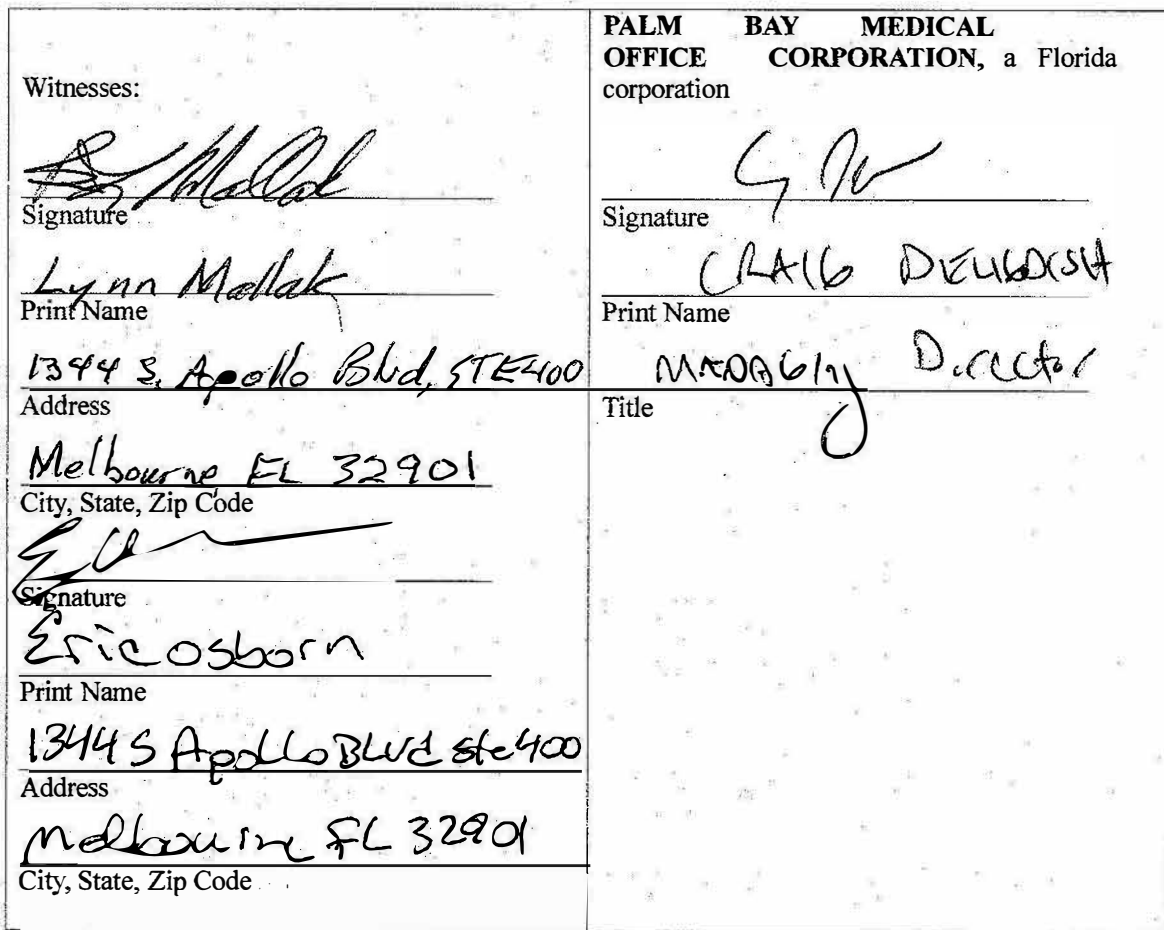 Witnesses:
Signature
Lynn Mallak
Print Name
1344 S. Apollo Blvd, STE400
Address
Melbourne FL 32901
City, State, Zip Code
Signature
Eric osborn
Print Name
1344 S Apollo BLvd ste 400
Address
Melbourne FL 32901
City, State, Zip Code
PALM BAY MEDICAL
OFFICE CORPORATION, a Florida
corporation
Signature
CRAIG DELIGDISH
Print Name
Director
Title